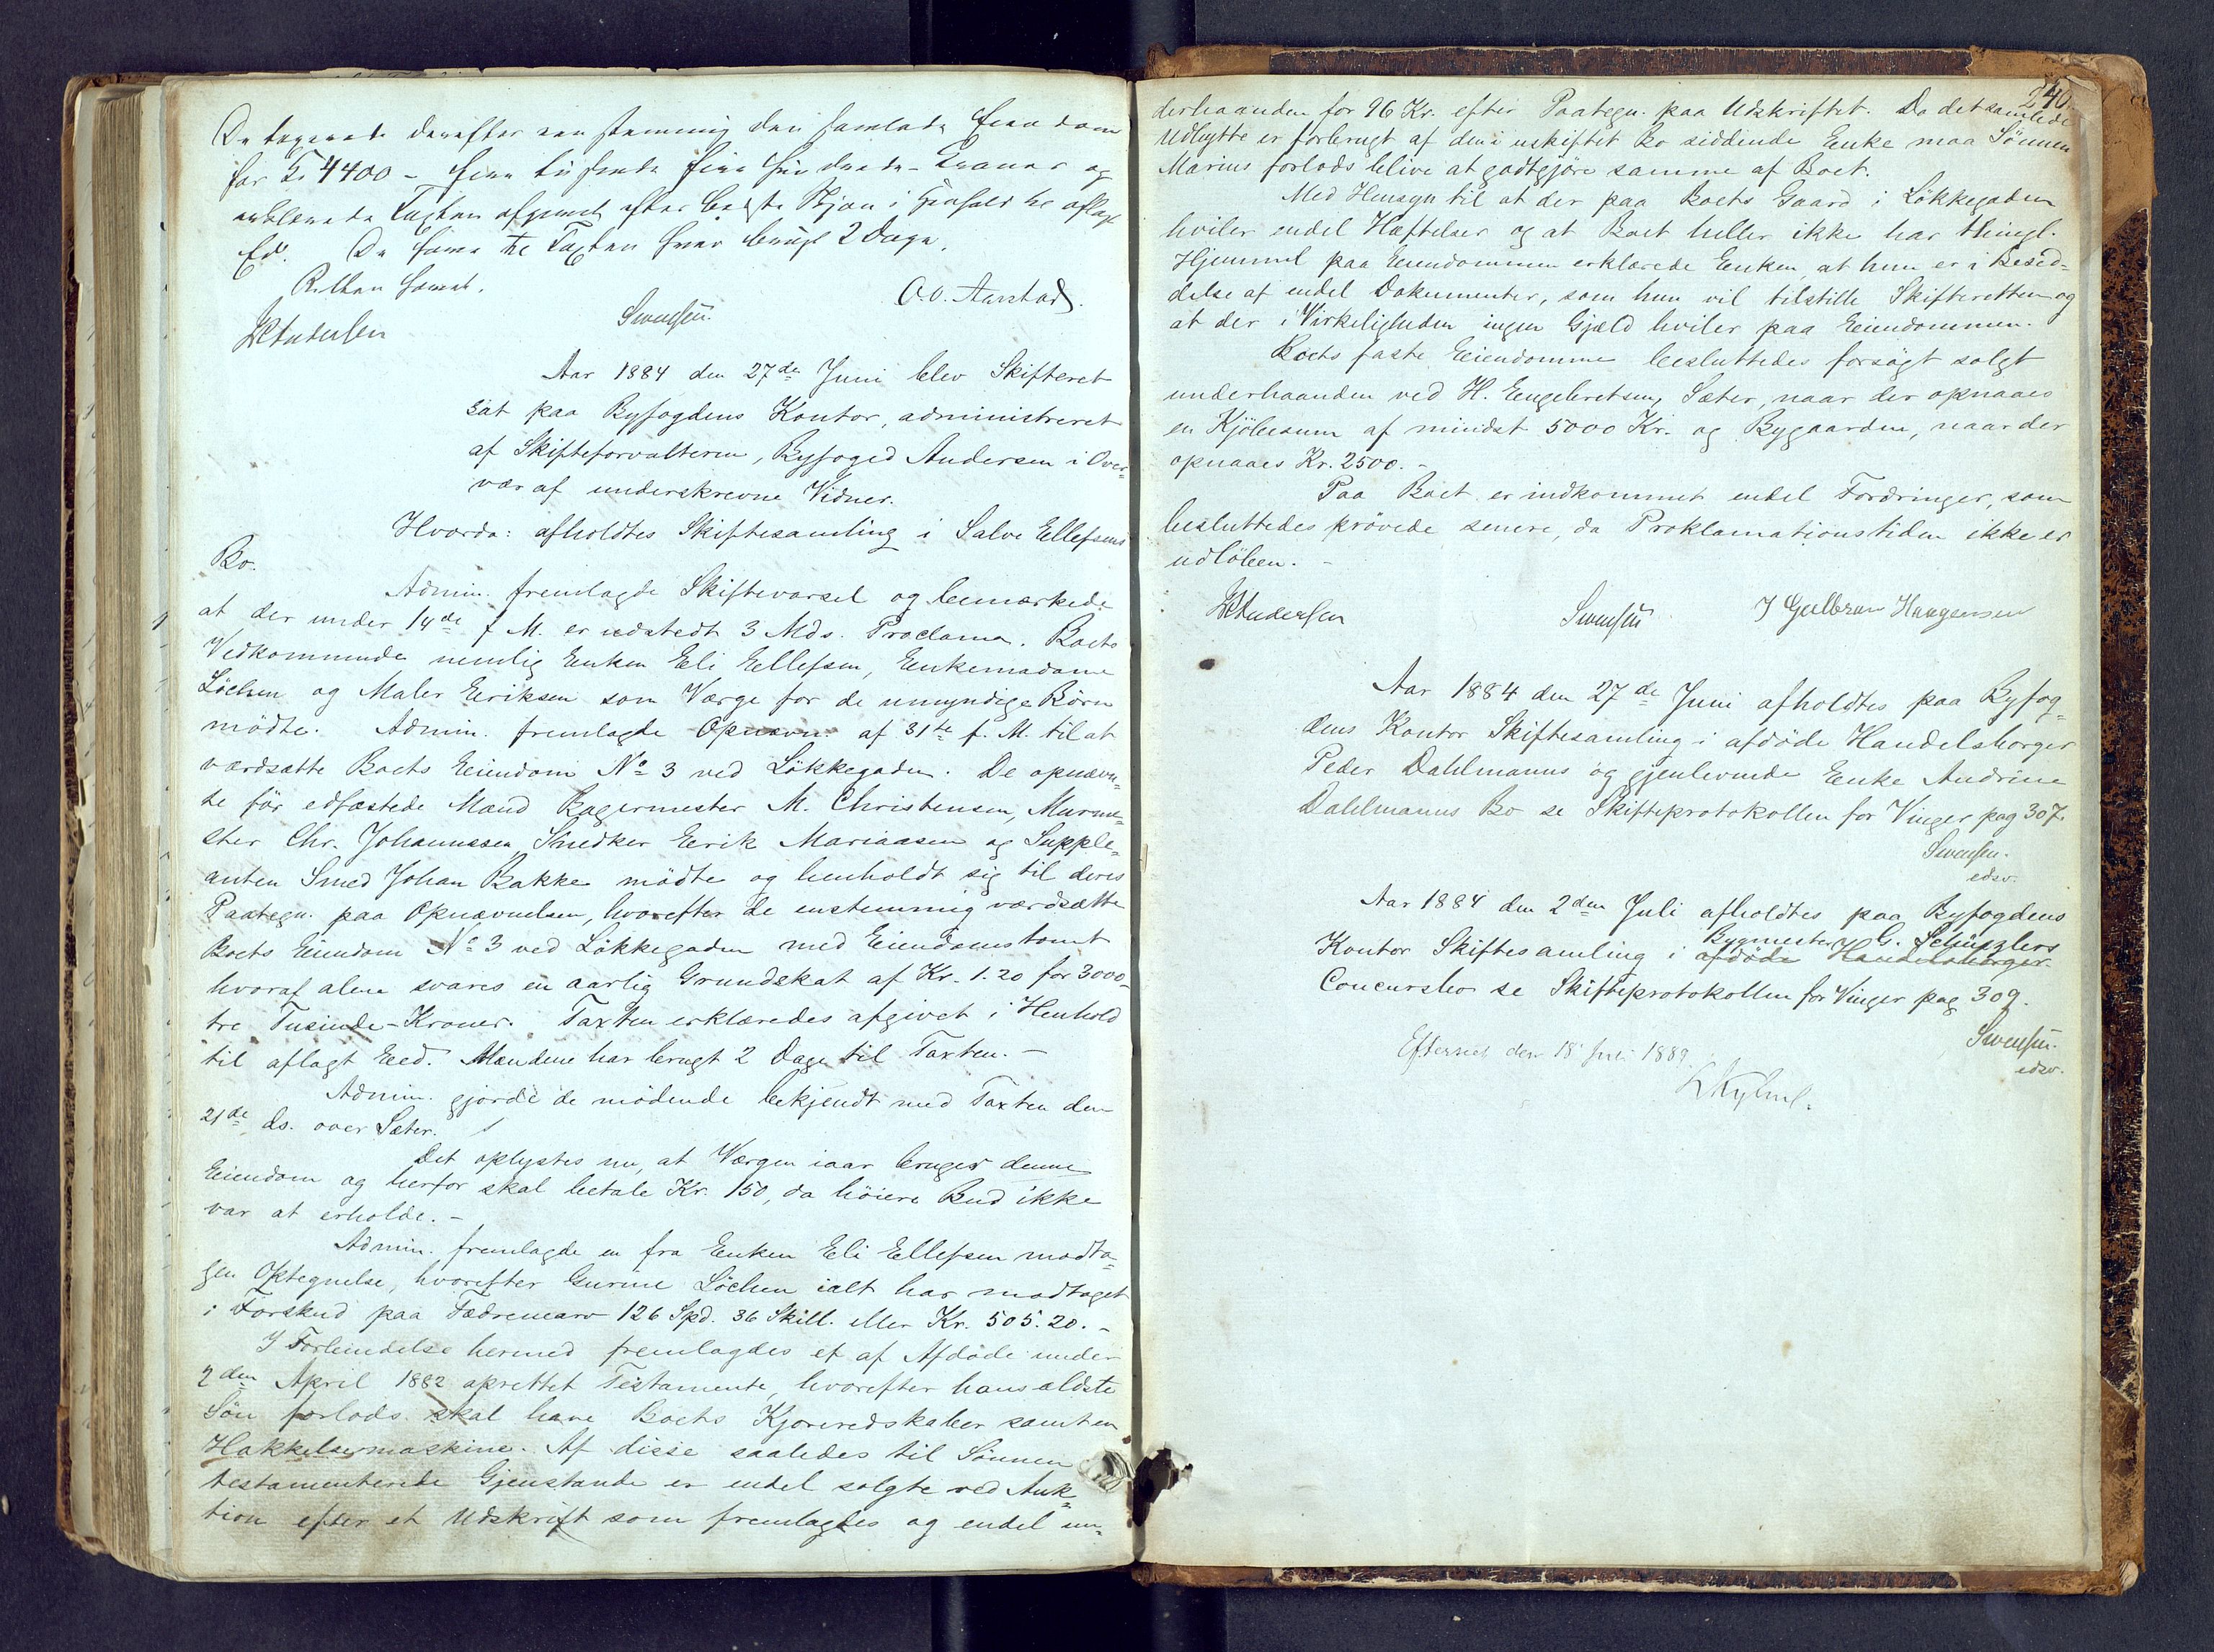 De taxerede derefter eenstemmig den samlede Eiendom
for Kr 4400 – fire tusende fire hundrede Kroner og
erklærede Taxten afgivet efter bedste Skjøn i Henhold til aflagt
Ed. De have til Taxten hver brugt 2 Dage.
Retten hævet.
Andersen Swensen O.O. Aarstad.
Aar 1884 den 27de Juni blev Skifteret
sat paa Byfogdens Kontor, administreret
af Skifteforvalteren, Byfoged Andersen i Over-
vær af underskrevne Vidner.
Hvorda: afholdtes Skiftesamling i Salve Ellefsens
Bo.
Admin. fremlagde Skiftevarsel og bemærkede
at der under 14de f. M. er udstedt 3 Mds. Proclama. Boets
Vedkommende nemlig Enken Eli Ellefsen, Enkemadame
Löchen og Maler Eeriksen som Værge for de umyndige Börn
mödte. Admin. fremlagde Opnævn. af 31te f. M. til at
værdsætte Boets Eiendom No 3 ved Lökkegaden. De opnævn-
te för edfæstede Mænd Bagermester M. Christensen, Murme-
ster Chr. Johannssen, Snedker Eerik Mariaasen og Supple-
anten Smed Johan Bakke mödte og henholdt sig til deres
Paategn. paa Opnævnelsen, hvorefter de enstemmig værdsætte
Boets Eiendom No 3 ved Lökkegaden med Eiendomstomt
hvoraf alene svares en aarlig Grundskat af Kr. 1.20 for 3000 –
tre Tusinde – Kroner. Taxten erklæredes afgivet i Henhold
til aflagt Eed. Mændene har brugt 2 Dage til Taxten. –
Admin. gjorde de mödende bekjendt med Taxten den
21de ds. over Sæter.
Det oplystes nu, at Værgen iaar bruger denne
Eiendom og herfor skal betale Kr. 150, da höiere Bud ikke
var at erholde. –
Admin. fremlagde en fra Enken Eli Ellefsen modta-
gen Optegnelse, hvorefter Gurine Löchen ialt har modtaget
i Forskud paa Fædrenearv 126 Spd. 36 Skill. eller Kr. 505.20. –
I Forbindelse hermed fremlagdes et af Afdöde under
2den April 1882 oprettet Testamente, hvorefter hans ældste
Sön forlods skal have Boets Kjøreredskaber samt en
Hakkelsesmaskine. Af disse saaledes til Sönnen
testamenterede Gjenstande er endel solgte ved Auk-
tion efter et Udskrift som fremlagdes og endel un-
240.
derhaanden for 96 Kr. efter Paategn. paa Udskriftet. Da det samlede
Udbytte er forbrugt af den i uskiftet Bo siddende Enke maa Sönnen
Marius forlods blive at godtgjöre samme af Boet.
Med Hensyn til at der paa Boets Gaard i Lökkegaden
hviler endel Hæftelser og at Boet heller ikke har thingl.
Hjemmel paa Eiendommen erklærede Enken, at hun er i Besid-
delse af endel Dokumenter, som hun vil tilstille Skifteretten og
at der i Virkeligheden ingen Gjæld hviler paa Eiendommen.
Boets faste Eiendomme besluttedes forsögt solgt
underhaanden ved H. Engebretsen, Sæter, naar der opnaaes
en Kjöbesum af mindst 5000 Kr. og Bygaarden, naar der
opnaaes Kr. 2500. –
Paa Boet er indkommet endel Fordringer, som
besluttedes prövede senere, da Proklamationstiden ikke er
udlöben. –
Andersen Swensen I Gulbran Haagensen
Aar 1884 den 27de Juni afholdtes paa Byfog-
dens Kontor Skiftesamling i afdöde Handelsborger
Peder Dahlmanns og gjenlevende Enke Andrine
Dahlmanns Bo se Skifteprotokollen for Vinger pag 307.
Swensen.
edsv.
Aar 1884 den 2den Juli afholdtes paa Byfogdens
Bygmester G. Schüsslers
Kontor Skiftesamling i afdöde Handelsborger
Concursbo se Skifteprotokollen for Vinger pag 309.
Swensen.
edsv.
Efterset den 18 Juli 1889.